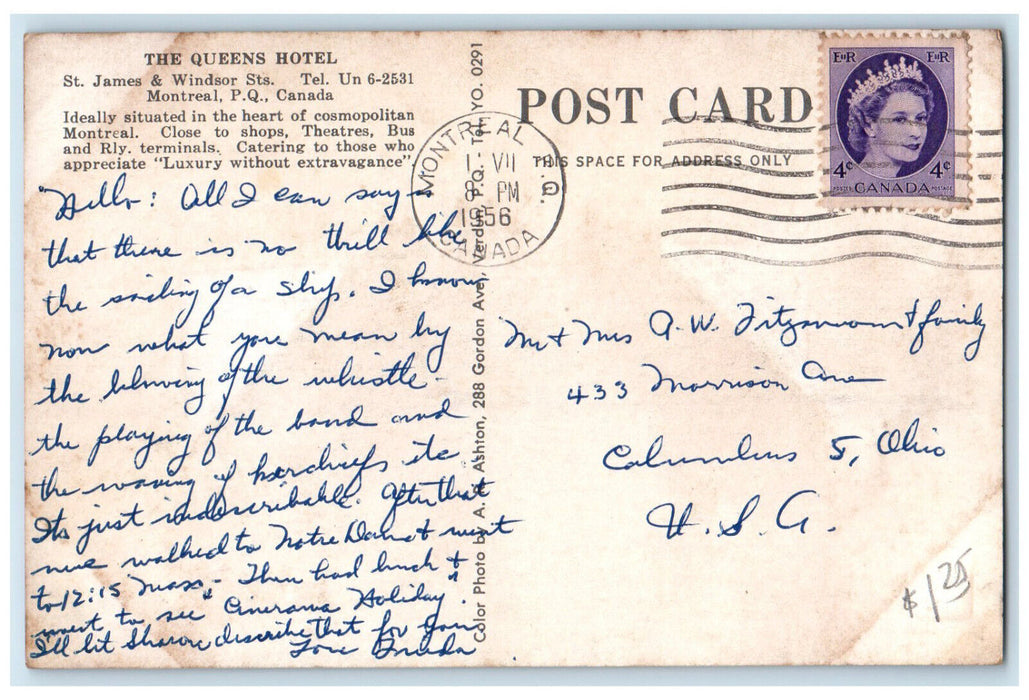 THE QUEENS HOTEL
St. James & Windsor Sts. Tel. Un 6-2531
Montreal, P.Q., Canada
Ideally situated in the heart of cosmopolitan
Montreal. Close to shops, Theatres, Bus
and Rly. terminals. Catering to those who
appreciate "Luxury without extravagance"
Hello: All I can say is
that there is no thrill like
the sailing of a ship. I know
now what you mean by
the blowing of the whistle -
the playing of the band and
the waving of kerchiefs etc
Its just indescribable. After that
we walked to Notre Dame & went
to 12:15 Mass - Then had lunch &
went to see "Cinerama Holiday".
I'll let Sharon describe that for you
Love
Color Photo by A. Ashton, 288 Gordon Ave, Verdun, P.Q. - Tel. YO. 0291
POST CARD
THIS SPACE FOR ADDRESS ONLY
MONTREAL P.Q.
1 VII
8 PM
1956
CANADA
EIIR EIIR
4¢ 4¢
POSTES CANADA POSTAGE
Mr & Mrs A. W. & family
433 Morrison Ave
Columbus 5, Ohio
U. S. A.
$1 25